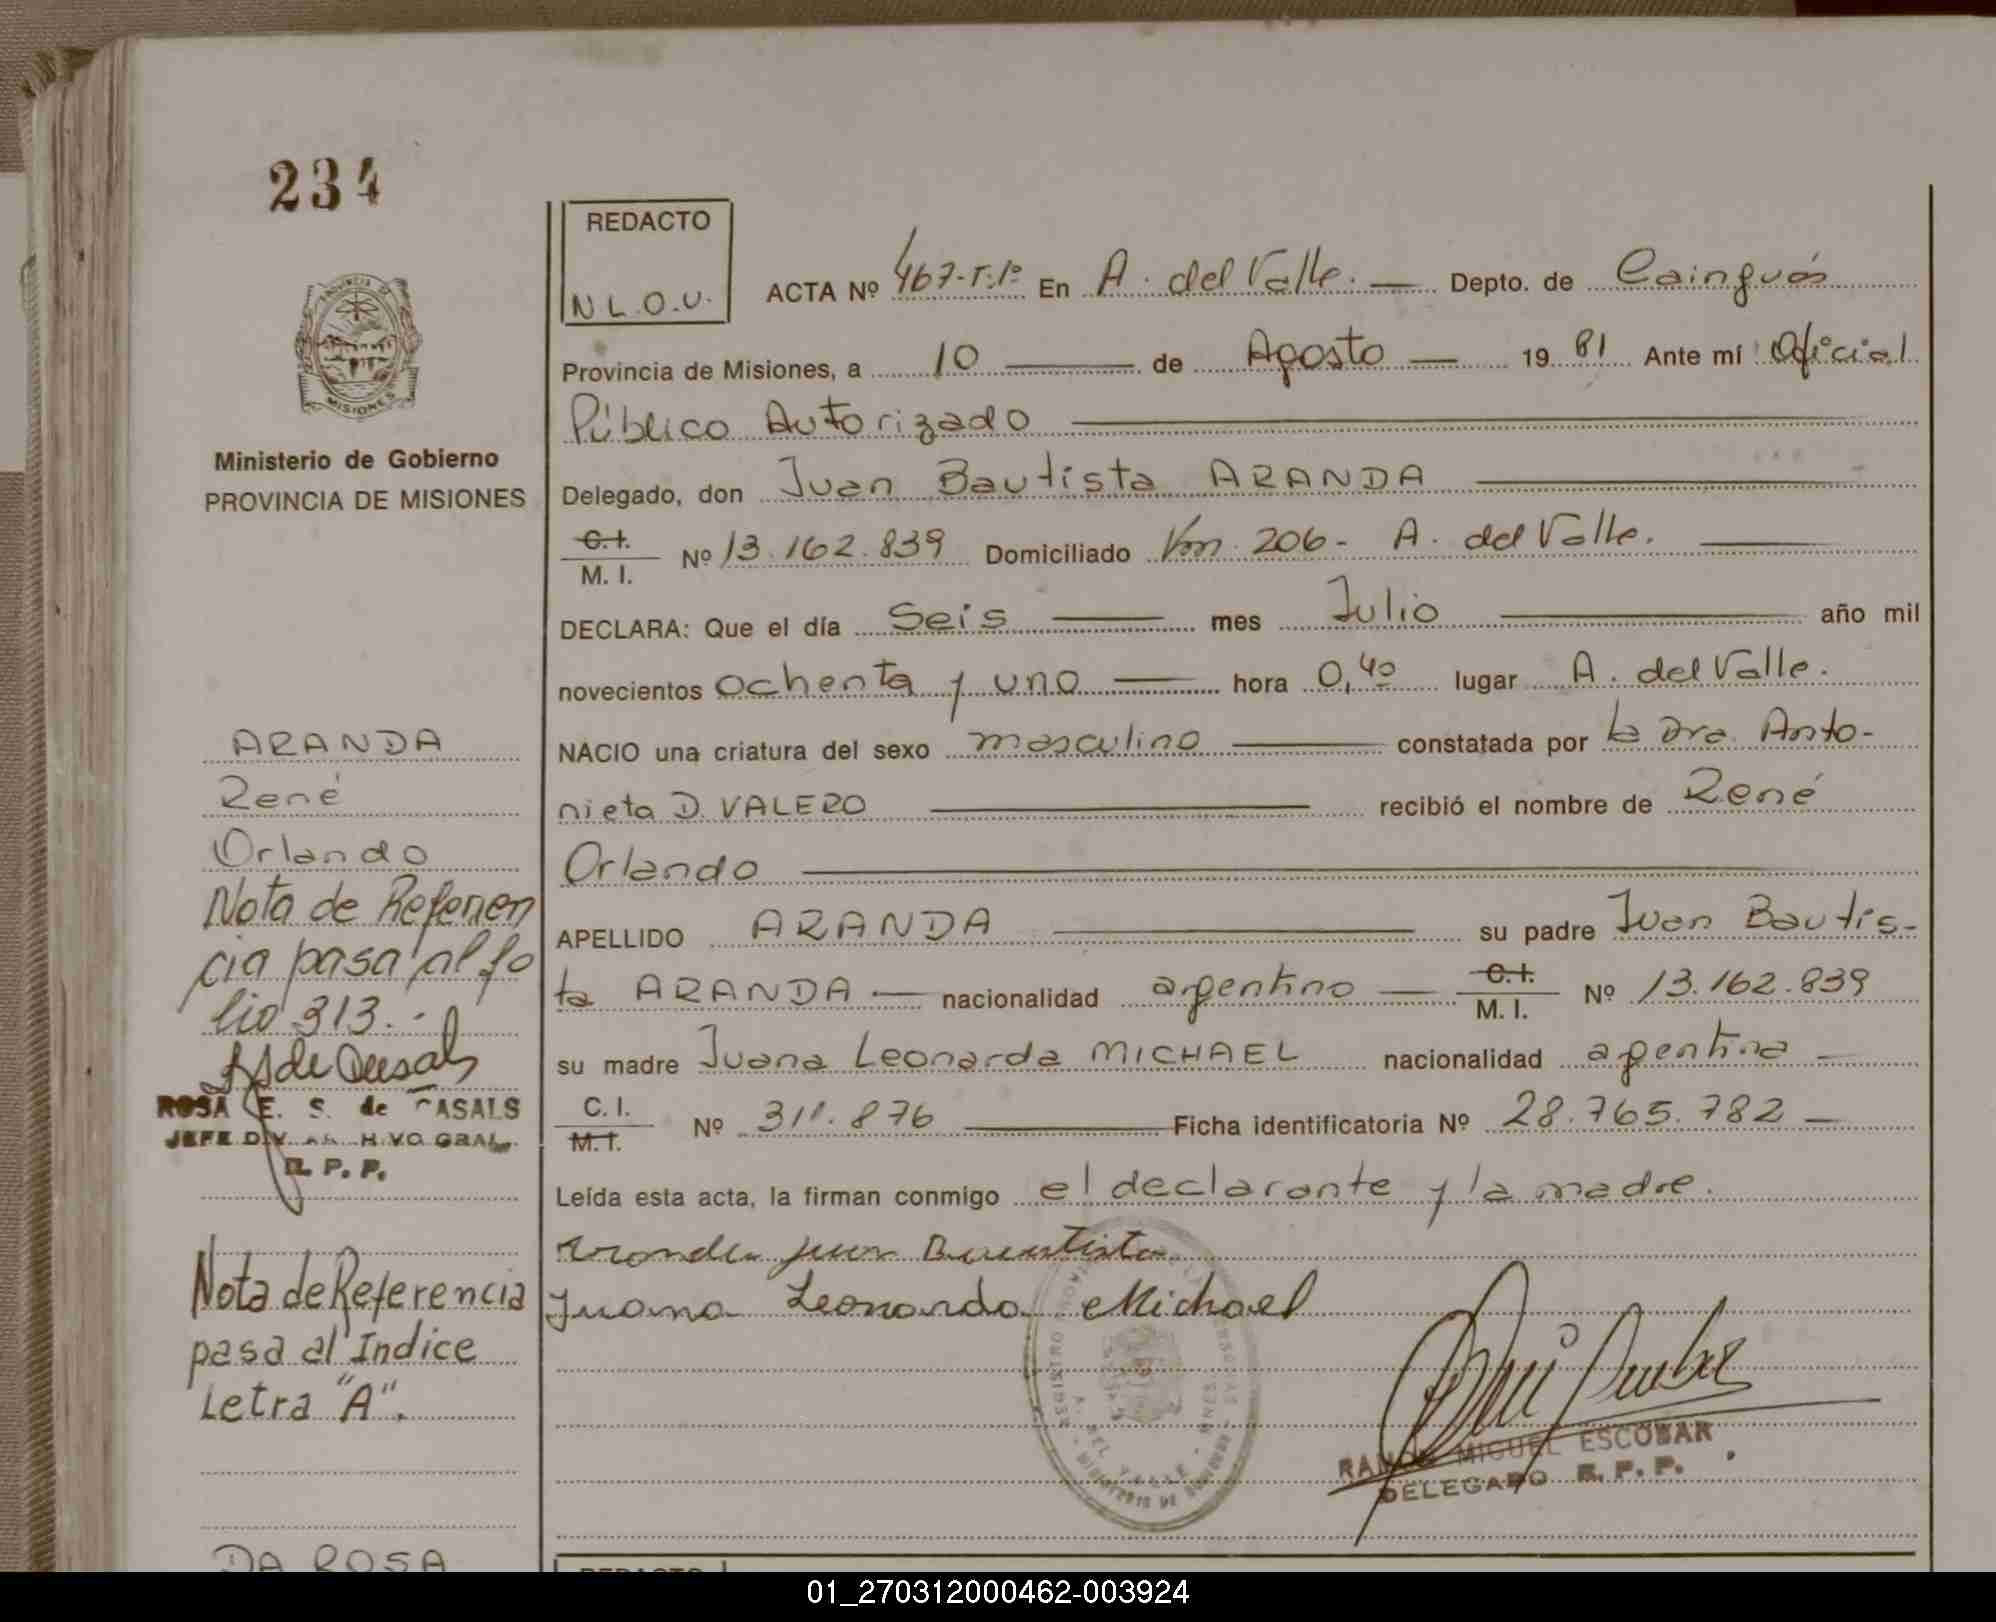 234
REDACTO
N L.O.U.
ACTA Nº 467-T:1º En A. del Valle. Depto. de Cainguás
Provincia de Misiones, a 10 de Agosto 19 81 Ante mí Oficial
Público Autorizado
Delegado, don Juan Bautista ARANDA
C.I. M. I. Nº 13.162.839 Domiciliado Km 206 - A. del Valle.
DECLARA: Que el día Seis mes Julio año mil
novecientos ochenta y uno hora 0,40 lugar A. del Valle.
NACIO una criatura del sexo masculino constatada por la Dra. Anto-
nieta D. VALERO recibió el nombre de René
Orlando
APELLIDO ARANDA su padre Juan Bautis-
ta ARANDA nacionalidad argentino C.I. M. I. Nº 13.162.839
su madre Juana Leonarda MICHAEL nacionalidad argentina
C. I. M.I. Nº 311.876 Ficha identificatoria Nº 28.765.782
Leída esta acta, la firman conmigo el declarante y la madre.
Aranda Juan Bautista
Juana Leonarda Michael
RAMON MIGUEL ESCOBAR
DELEGADO R. P. P.
PROVINCIA DE
MISIONES
Ministerio de Gobierno
PROVINCIA DE MISIONES
ARANDA
René
Orlando
Nota de Referen
cia pasa al fo
lio 313.-
ROSA E. S. de CASALS
JEFE DIV. ARCHIVO GRAL.
R. P. P.
Nota de Referencia
pasa al Indice
Letra "A".
DA ROSA
REDACTO
01_270312000462-003924